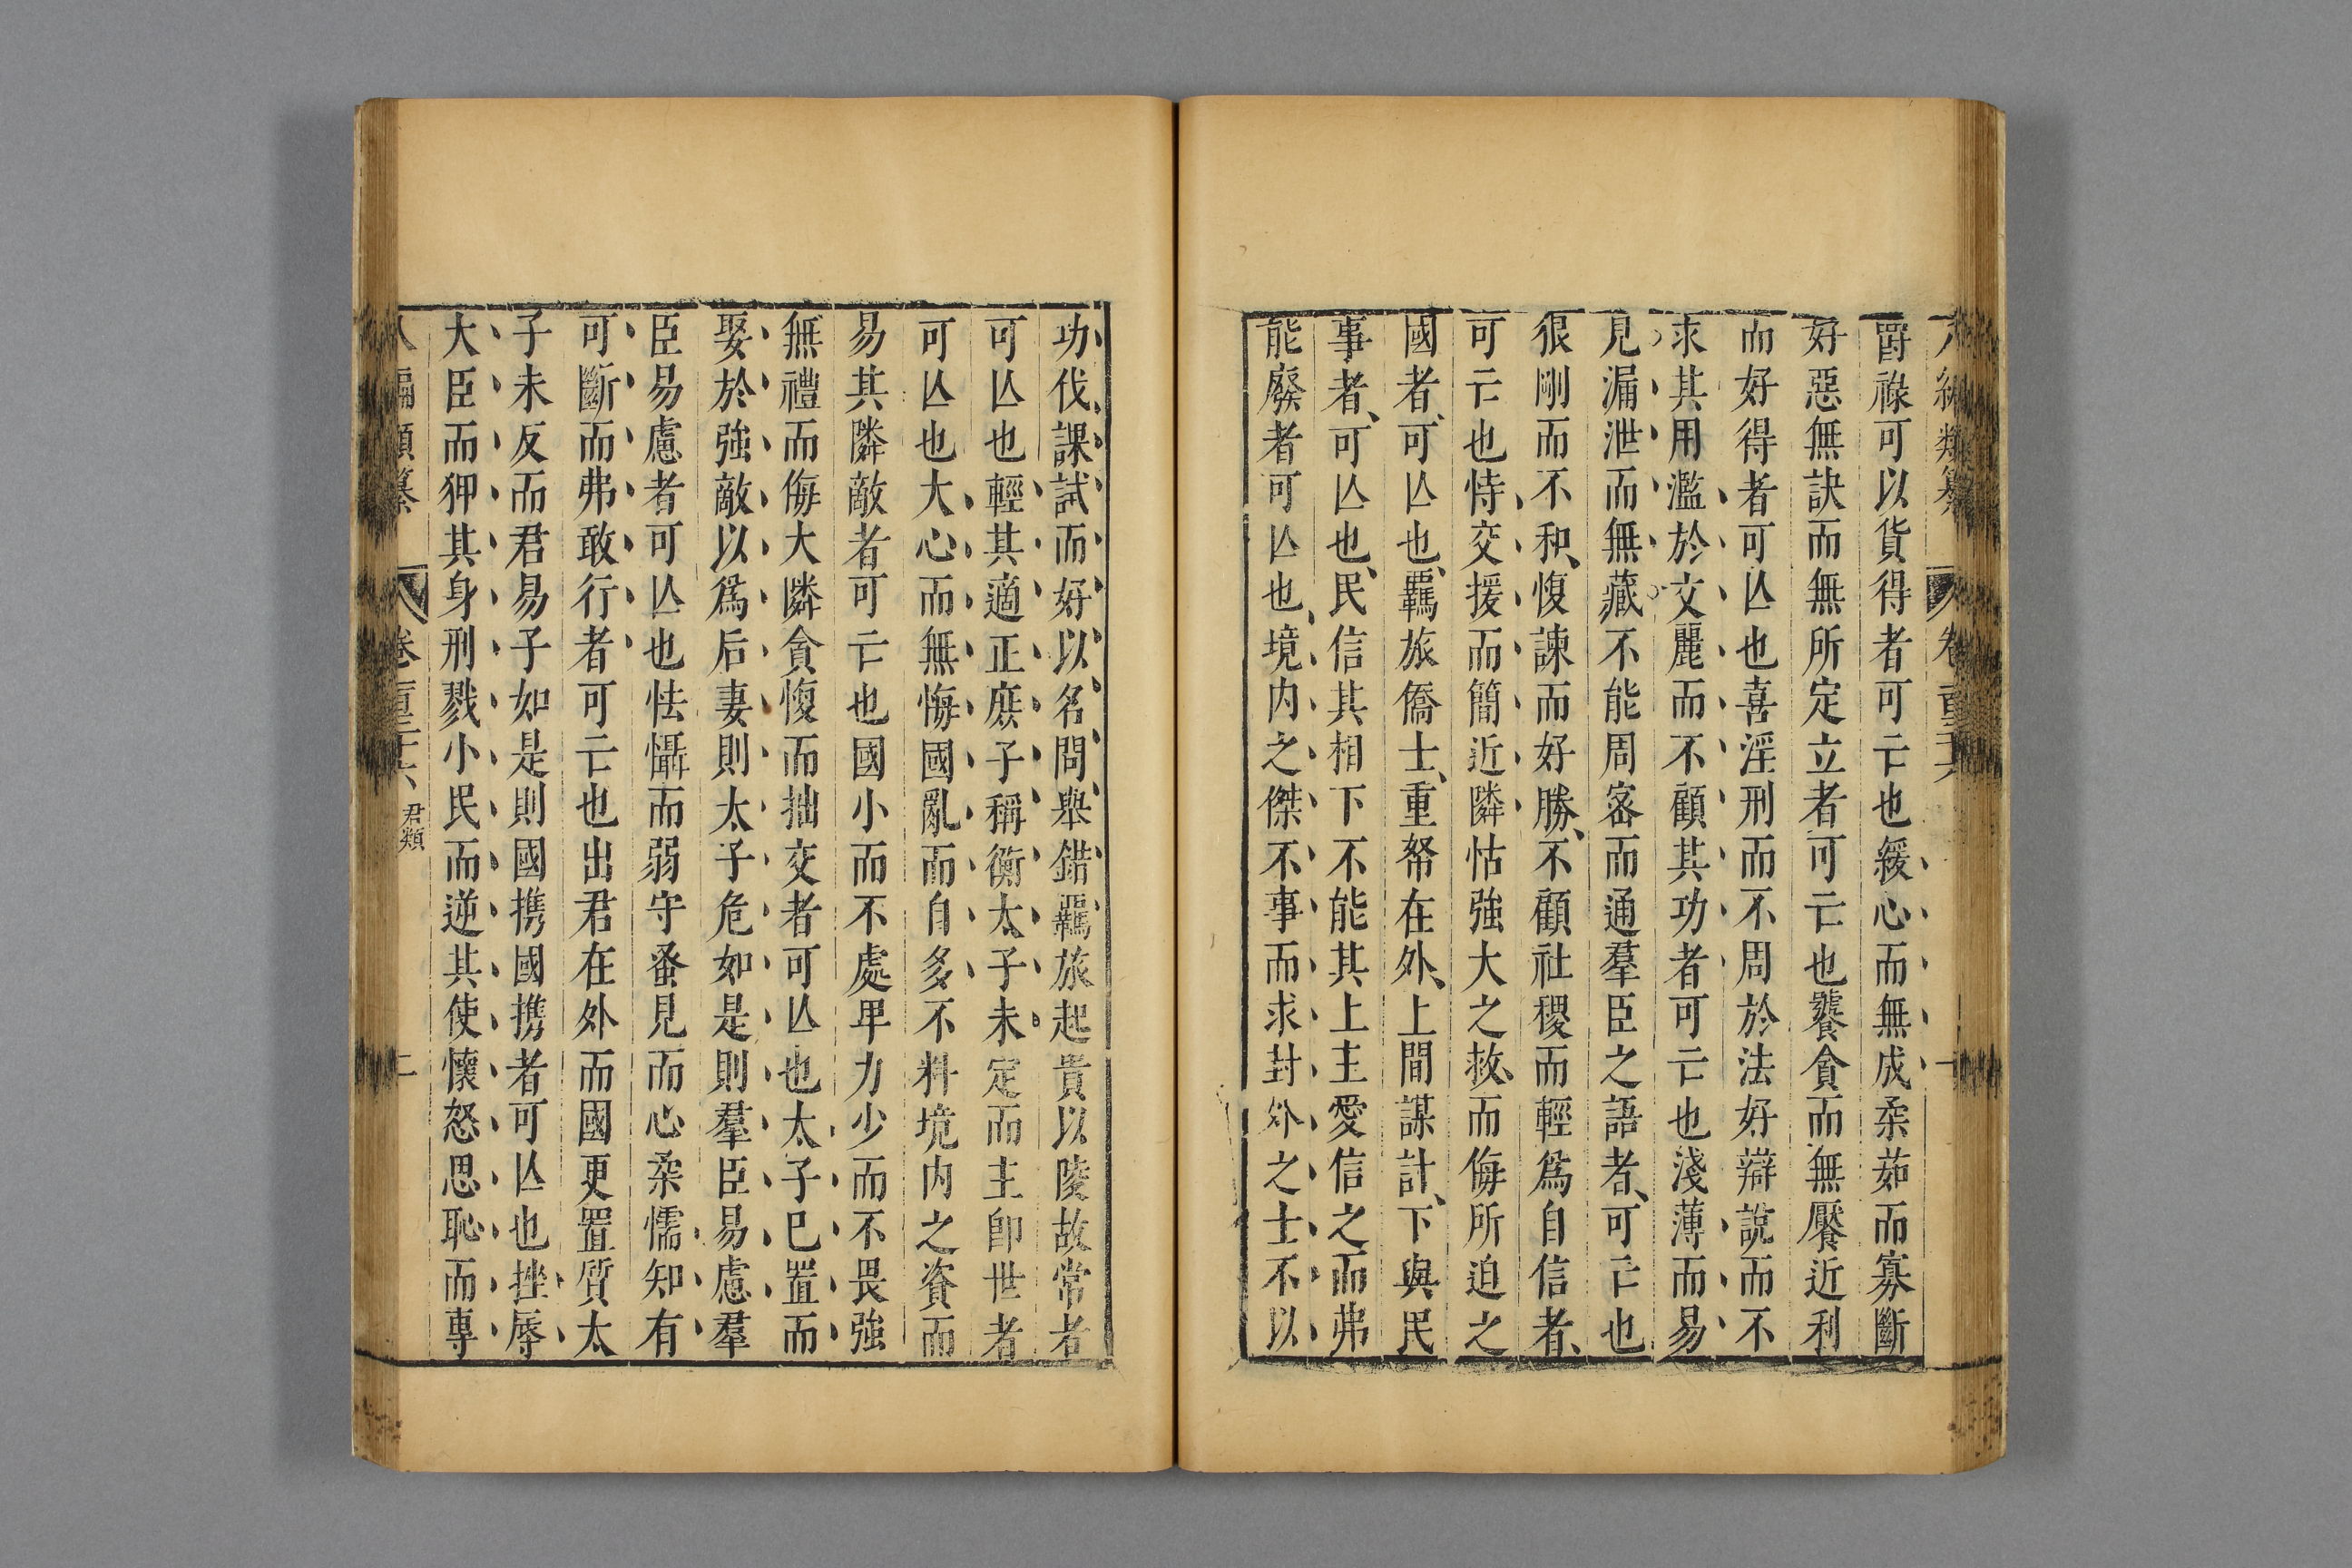 爵祿可以貨得者可亡也緩心而無成柔茹而寡斷
好惡無訣而無所定立者可亡也饕貪而無饜近利
而好得者可亾也喜淫刑而不周於法好辯說而不
求其用濫於文麗而不顧其功者可亡也淺薄而易
見漏泄而無藏不能周宻而通羣臣之語者可亡也
狠剛而不和愎諫而好勝不顧社稷而輕爲自信者
可亡也恃交援而簡近隣怙強大之救而侮所迫之
國者可亾也羈旅僑士重帑在外上間謀計下與民
事者可亾也民信其相下不能其上主愛信之而弗
能廢者可亾也境内之傑不事而求封外之士不以
功伐課試而好以名問舉錯羈旅起貴以陵故常者
可亾也輕其適正庶子稱衡太子未定而主卽世者
可亾也大心而無悔國亂而自多不料境内之資而
易其隣敵者可亡也國小而不處卑力少而不畏強
無禮而侮大隣貪愎而拙交者可亾也太子已置而
娶於強敵以爲后妻則太子危如是則羣臣易慮羣
臣易慮者可亾也怯懾而弱守蚤見而心柔懦知有
可斷而弗敢行者可亡也出君在外而國更置質太
子未反而君易子如是則國携國携者可亾也挫辱
大臣而狎其身刑戮小民而逆其使懷怒思恥而專
君類
二